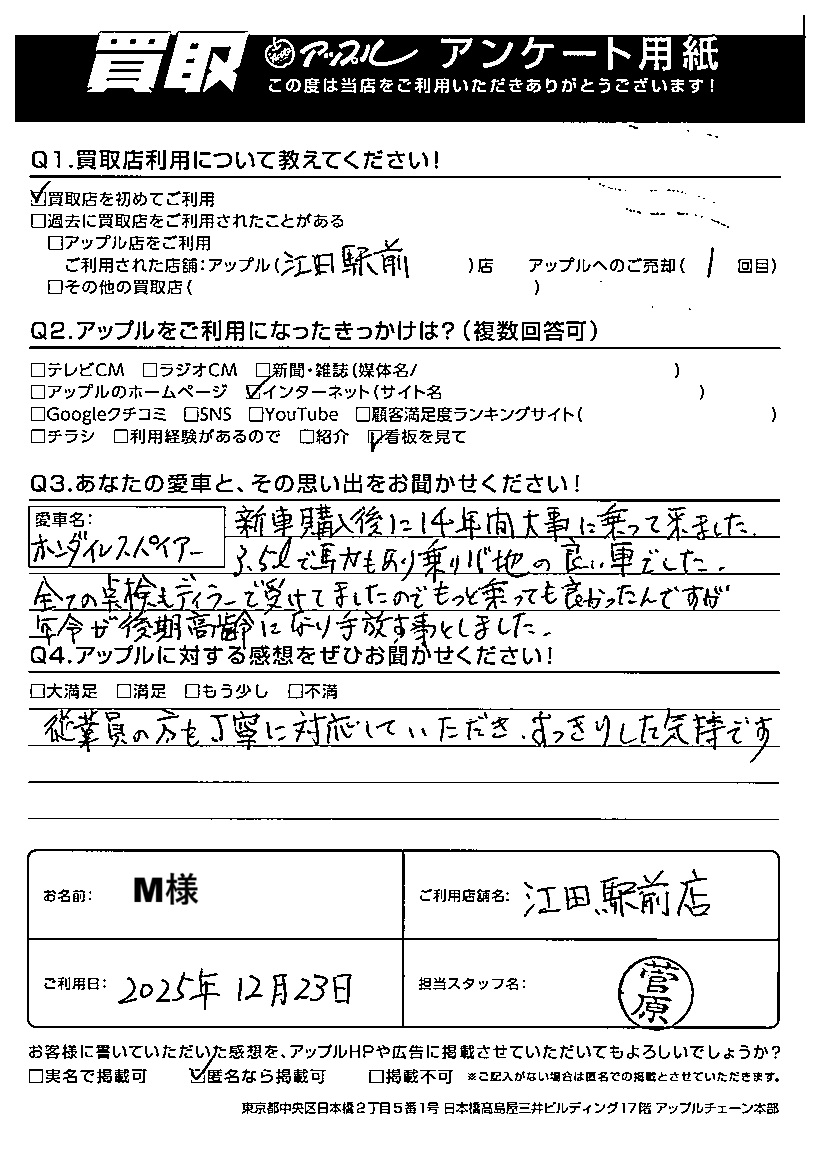 買取 アップル アンケート用紙
この度は当店をご利用いただきありがとうございます!
Q1.買取店利用について教えてください!
☑買取店を初めてご利用
□過去に買取店をご利用されたことがある
□アップル店をご利用
ご利用された店舗:アップル(江田駅前)店 アップルへのご売却(1回目)
□その他の買取店( )
Q2.アップルをご利用になったきっかけは?(複数回答可)
□テレビCM □ラジオCM □新聞・雑誌(媒体名/ )
□アップルのホームページ ☑インターネット(サイト名 )
□Googleクチコミ □SNS □YouTube □顧客満足度ランキングサイト( )
□チラシ □利用経験があるので □紹介 ☑看板を見て
Q3.あなたの愛車と、その思い出をお聞かせください!
愛車名:
ホンダイレスペイアー
新車購入後に14年間大事に乗って来ました.
3.5lで馬力もあり乗り心地の良い車でした.
全ての点検もディラーで受けてましたのでもっと乗っても良かったんですが
年令が後期高齢になり手放す事としました.
Q4.アップルに対する感想をぜひお聞かせください!
□大満足 □満足 □もう少し □不満
従業員の方も丁寧に対応していただき.すっきりした気持です
お名前: M様
ご利用店舗名: 江田駅前店
ご利用日: 2025年12月23日
担当スタッフ名: 菅原
お客様に書いていただいた感想を、アップルHPや広告に掲載させていただいてもよろしいでしょうか?
□実名で掲載可 ☑匿名なら掲載可 □掲載不可 ※ご記入がない場合は匿名での掲載とさせていただきます。
東京都中央区日本橋2丁目5番1号 日本橋髙島屋三井ビルディング17階 アップルチェーン本部